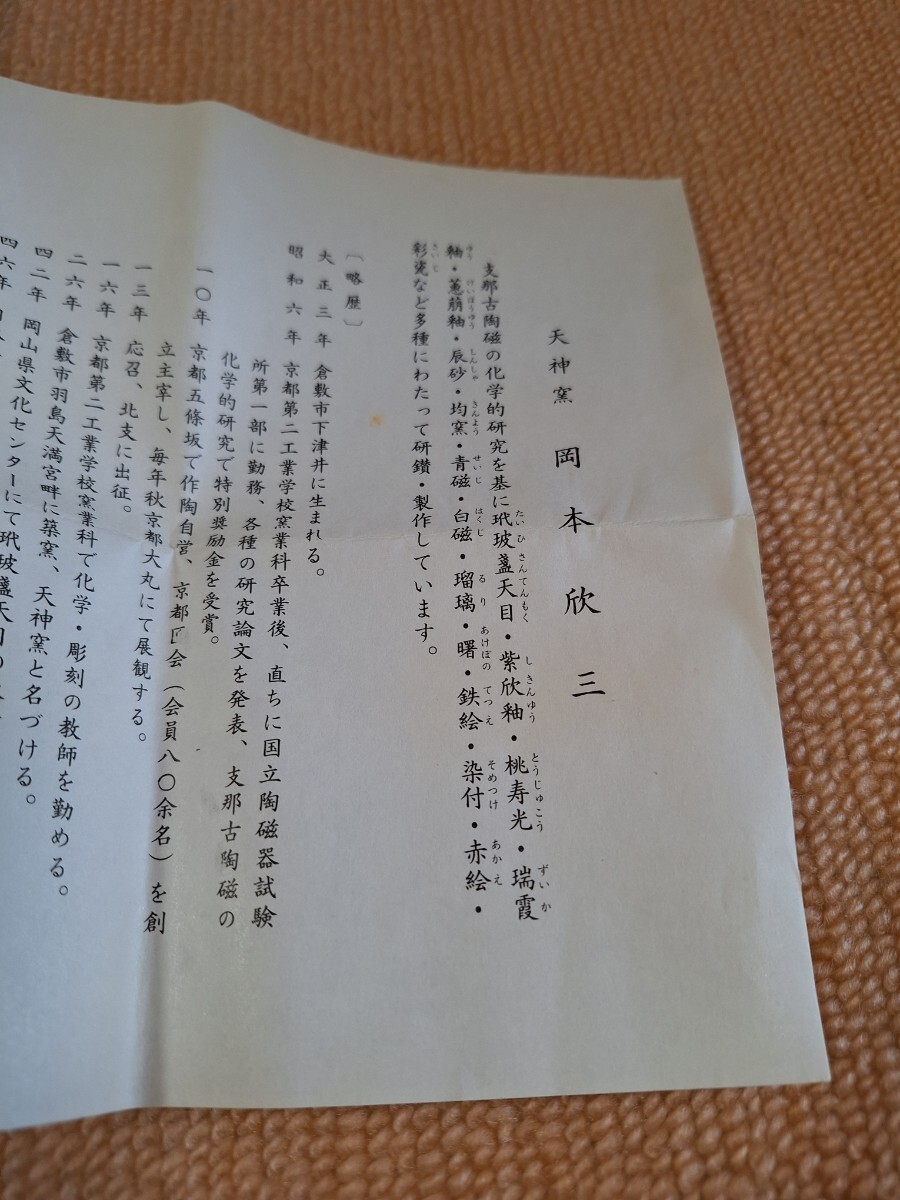 天神窯 岡本欣三
支那古陶磁の化学的研究を基に玳玻盞天目・紫欣釉・桃寿光・瑞霞
釉・蔥萠釉・辰砂・均窯・青磁・白磁・瑠璃・曙・鉄絵・染付・赤絵・
彩瓷など多種にわたって研鑽・製作しています。
〔略歴〕
大正三年 倉敷市下津井に生まれる。
昭和六年 京都第二工業学校窯業科卒業後、直ちに国立陶磁器試験
所第一部に勤務、各種の研究論文を発表、支那古陶磁の
化学的研究で特別奨励金を受賞。
一〇年 京都五條坂で作陶自営、京都 会（会員八〇余名）を創
立主宰し、毎年秋京都大丸にて展観する。
一三年 応召、北支に出征。
一六年 京都第二工業学校窯業科で化学・彫刻の教師を勤める。
二六年 倉敷市羽島天満宮畔に築窯、天神窯と名づける。
四二年 岡山県文化センターにて玳玻盞天目の
四六年